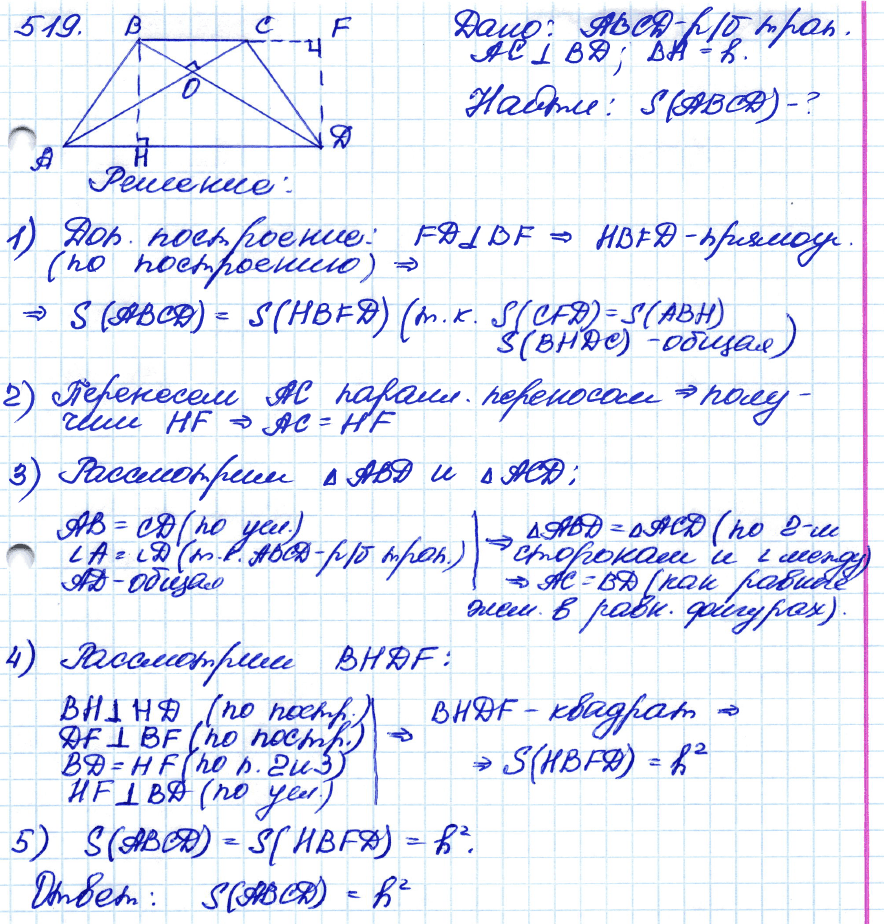 519.
B C F
O
A H D
Дано: ABCD-р/б трап.
AC ⊥ BD; BH = h.
Найти: S(ABCD)-?
Решение:
1) Доп. построение: FD⊥BF ⇒ HBFD-прямоуг.
(по построению) ⇒
⇒ S(ABCD) = S(HBFD) (т.к. S(CFD)=S(ABH)
S(BHDC)-общая)
2) Перенесем AC паралл. переносом ⇒ полу-
чим HF ⇒ AC = HF
3) Рассмотрим △ABD и △ACD;
AB = CD (по усл.)
∠A = ∠D (т.к. ABCD-р/б трап.)
AD-общая
⇒ △ABD = △ACD (по 2-м
сторонам и ∠ между)
⇒ AC=BD (как равные
элем. в равн. фигурах).
4) Рассмотрим BHDF:
BH⊥HD (по постр.)
DF⊥BF (по постр.)
BD=HF (по п. 2 и 3)
HF⊥BD (по усл.)
⇒ BHDF - квадрат ⇒
⇒ S(HBFD) = h²
5) S(ABCD) = S(HBFD) = h².
Ответ: S(ABCD) = h²